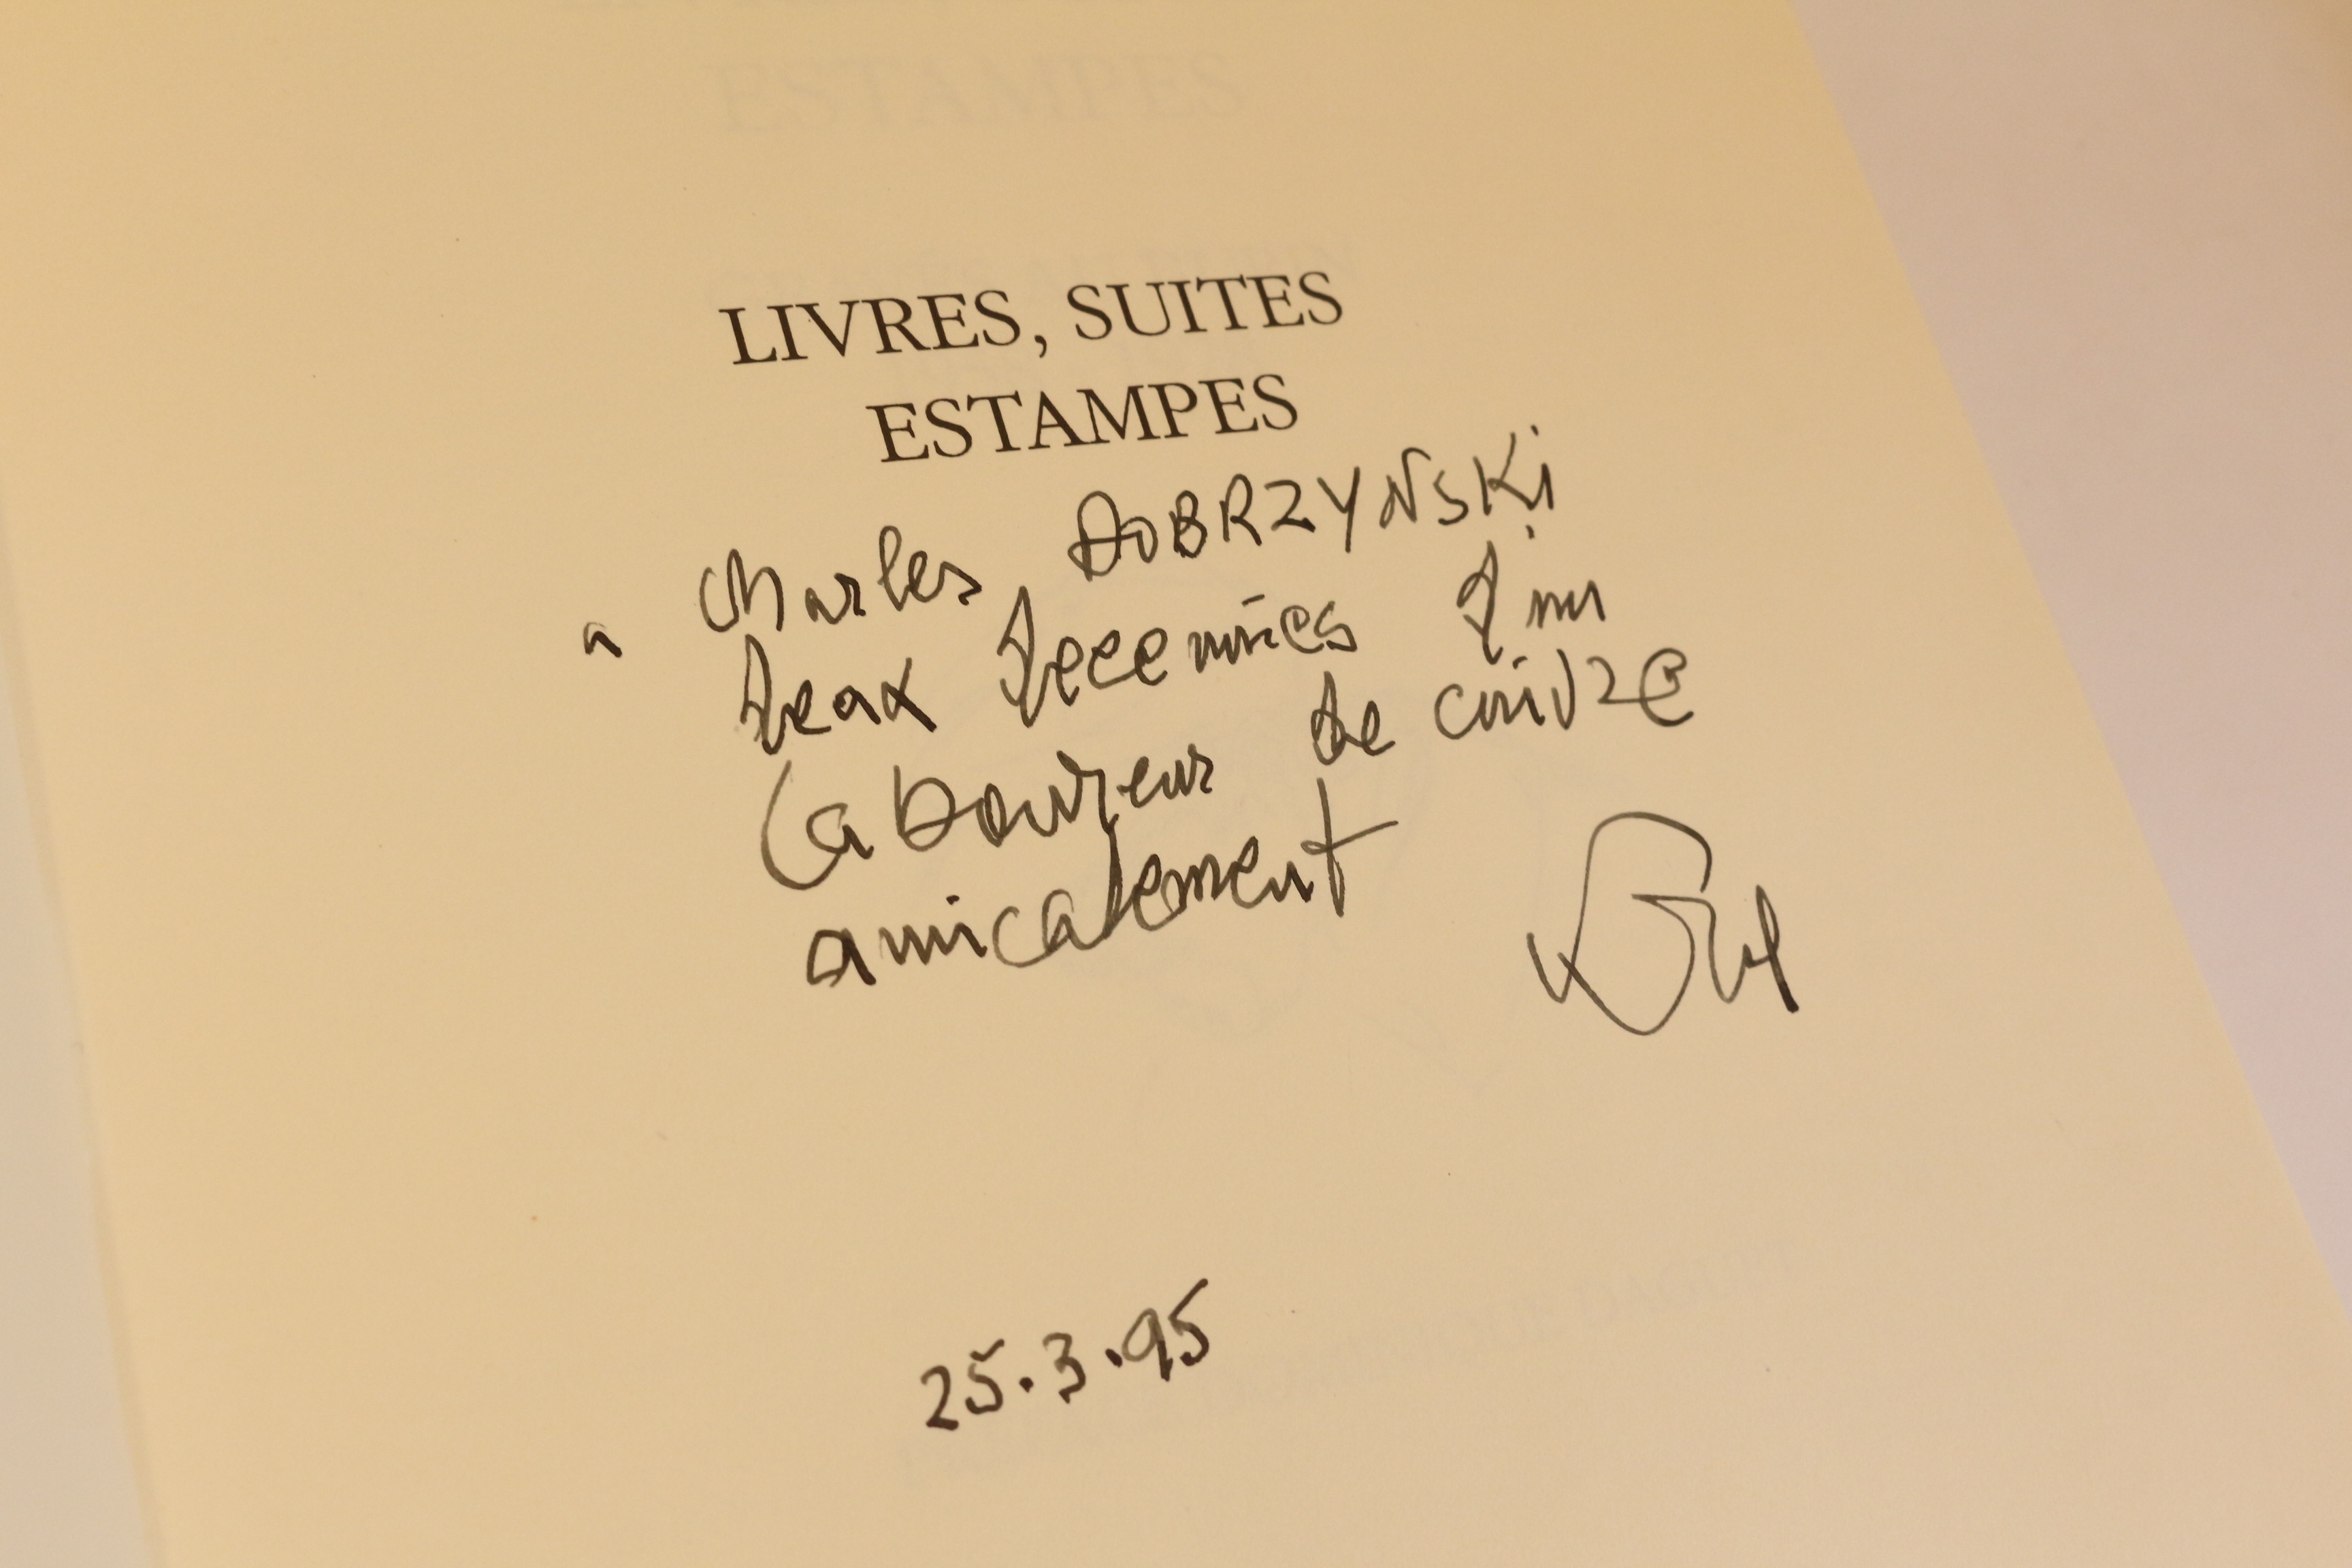 ESTAMPES
LIVRES, SUITES
ESTAMPES
a Charles DOBRZYNSKi
deux decennies d'un
laboureur de cuivre
amicalement
25.3.95